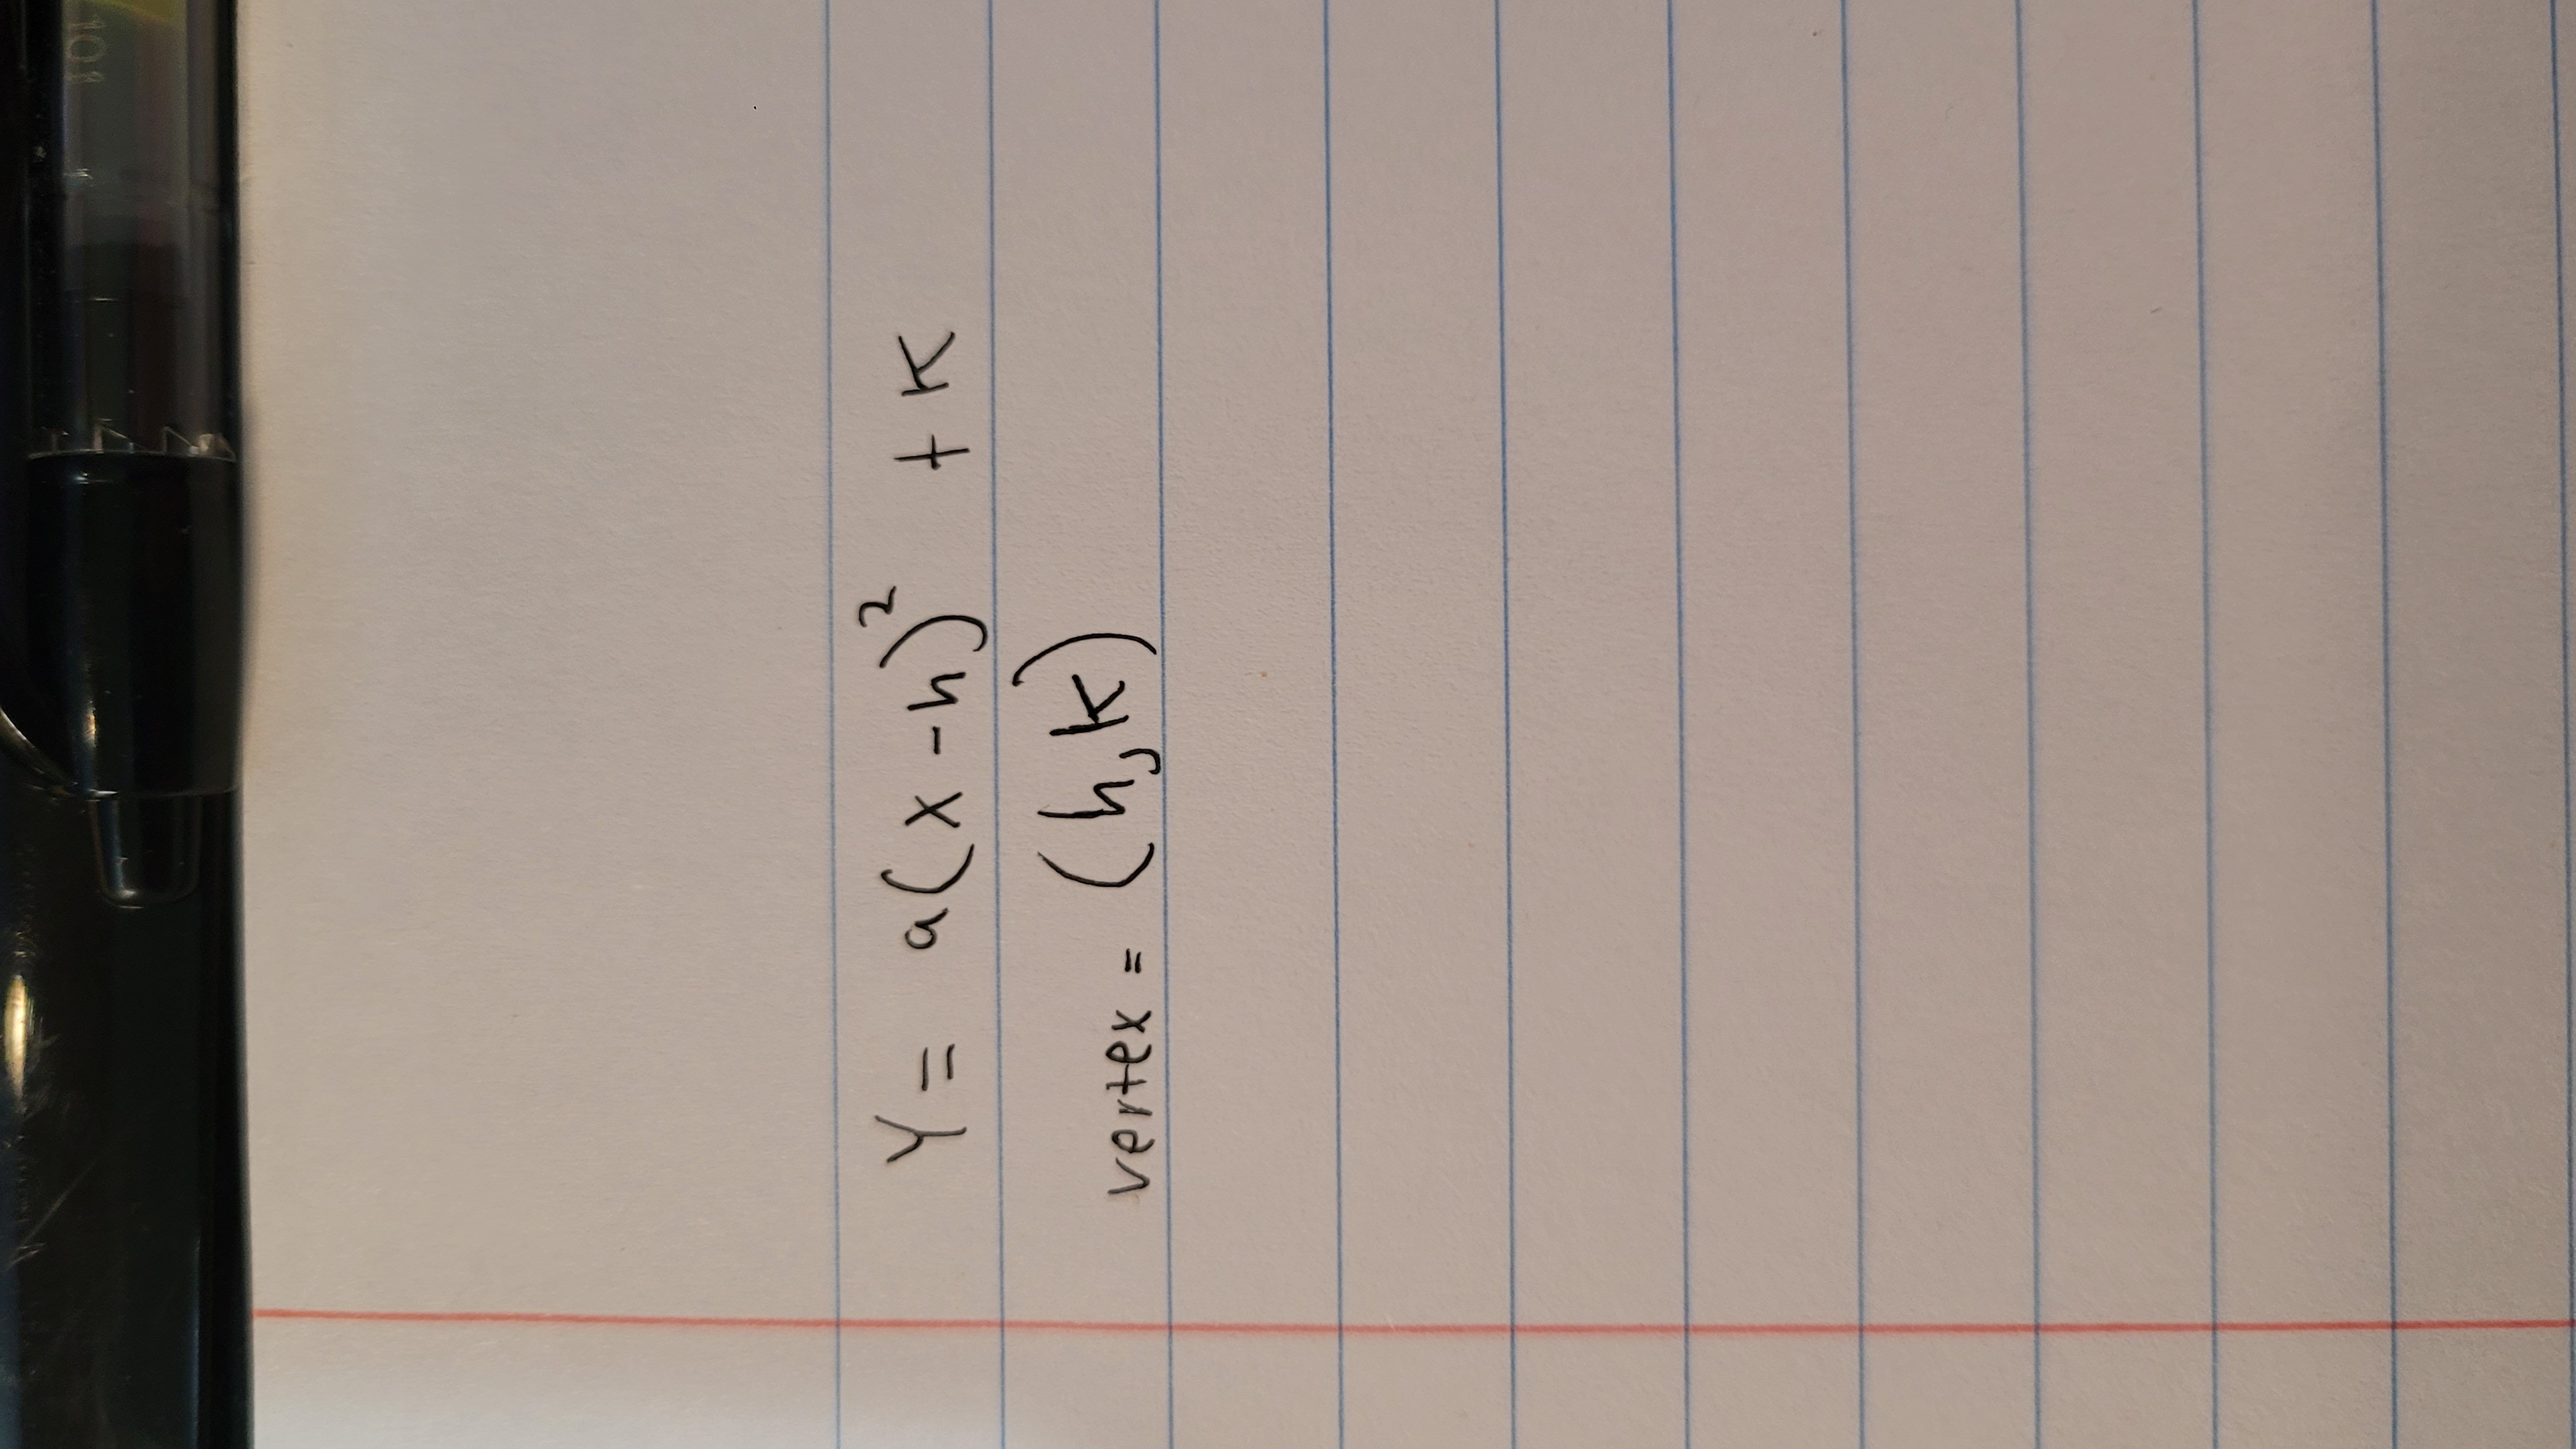 Y = a(x-h)² + K
vertex = (h,K)